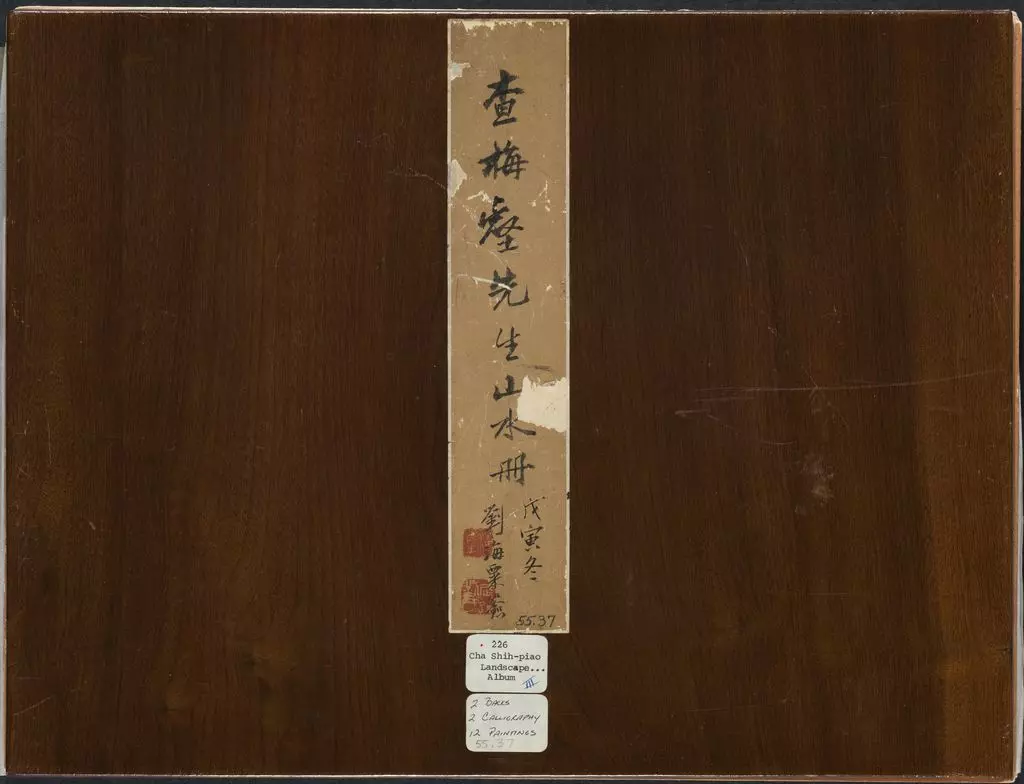 查梅壑先生山水冊
戊寅冬
劉海粟簽
55.37
226
Cha Shih-piao
Landscape...
Album III
2 BACKS
2 CALLIGRAPHY
12 PAINTINGS
55.37